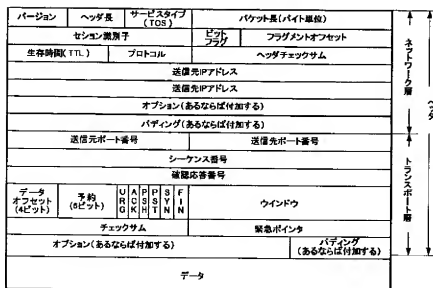 バージョン ヘッダ長 サービスタイプ(TOS) パケット長(バイト単位)
セション識別子 ビットフラグ フラグメントオフセット
生存時間(TTL) プロトコル ヘッダチェックサム
送信元IPアドレス
送信先IPアドレス
オプション(あるならば付加する)
パディング(あるならば付加する)
送信元ポート番号 送信先ポート番号
シーケンス番号
確認応答番号
データオフセット(4ビット) 予約(6ビット) URG ACK PSH PST SYN FIN ウインドウ
チェックサム 緊急ポインタ
オプション(あるならば付加する) パディング(あるならば付加する)
データ
ネットワーク層
トランスポート層
ヘッダ